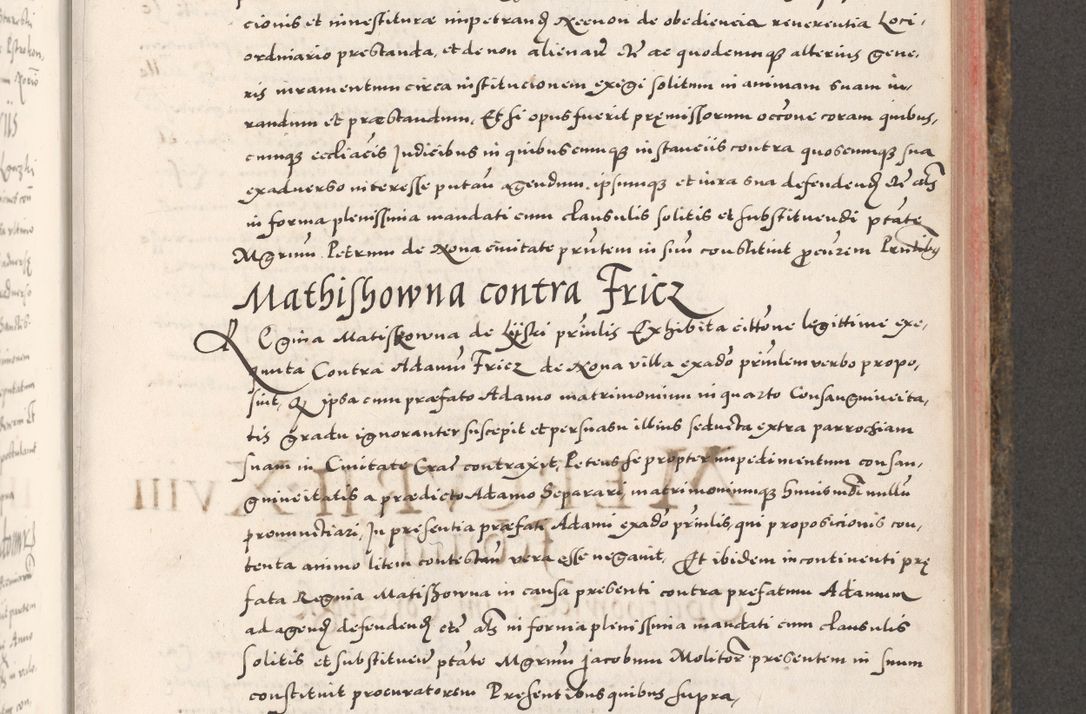 cionis et investiturae impetrand Necnon de obedientia reverentia Loci
ordinario prestanda, et de non alienan etc ac quodcumq alterius gene,
ris iuramentum circa institucionem exigi solitum in animam suam iu,
randum et præstandum, Et si opus fuerit premissorum occone coram quibus,
cumq eccliacis Judicibus in quibuscumq instanciis contra quoscumq sua
ex adverso interesse putan agendum, ipsumq et iura sua defendend etc als
in forma plenissima mandati cum clausulis solitis et substituendi ptate
Mgrum Petrum de Nova civitate pntem in suu constituit procurem Pntibus
Mathishowna contra Fricz
REgina Matiskowna de prinlis Exhibita cittone legittime exe,
quuta Contra Adamu Fricz de Nova villa exado prinlem verbo propo,
suit, Q ipsa cum præfato Adamo matrimonium in quarto Consanguineita,
tis gradu ignoranter suscepit et persuasu illius seducta extra parrochiam
suam in Civitate Crac contraxit, Petens se propter impedimentum consan,
guineitatis a prædicto Adamo Separari, matrimoniumq huiusmdi nullu
pronunctiari, In presentia præfati Adami exado prinlis, qui proposicionis con,
tenta animo litem contestan vera esse negavit, Et ibidem incontinenti pre
fata Regina Matishowna in causa presenti contra prefatum Adamum
ad agend defendend etc als in forma plenissima mandati cum clausulis
solitis et substituen ptate Mgrum Jacobum Molitor presentem in suum
constituit procuratorem Presentibus quibus supra,